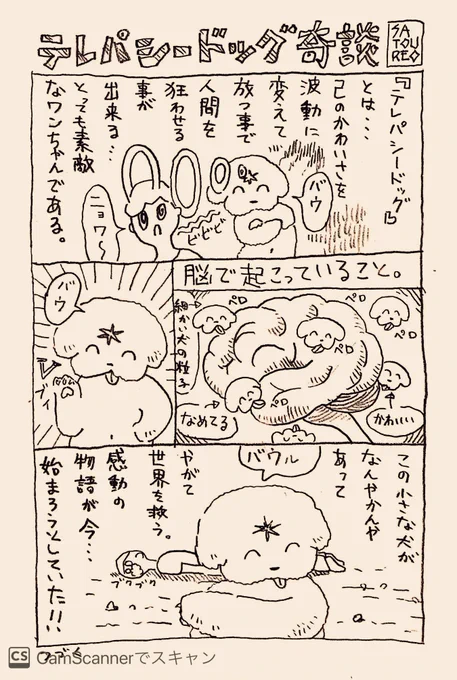 テレパシードッグ奇談
SA
TOU
REO
『テレパシードッグ』
とは…
己のかわいさを
波動に
変えて
放つ事で
人間を
狂わせる
事が
出来る…
とっても素敵
なワンちゃんである。
バウ
ビビビ
ニョワ〜
脳で起こっていること。
ペロ
ペロ
ペロ
ペロ
ペロ
細かい犬の粒子
なめてる
かわいい
バウ
ブイ
この小さな犬が
なんやかんや
あって
バウル
やがて
世界を救う。
感動の
物語が今…
始まろうとしていた!!
ブクブク
つづく
CS CamScannerでスキャン